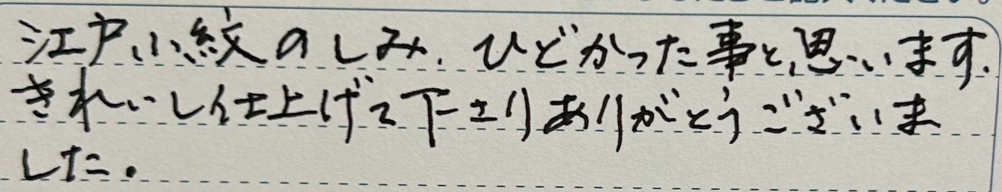 江戸小紋のしみ、ひどかった事と思います。
きれいに仕上げて下さりありがとうございま
した。